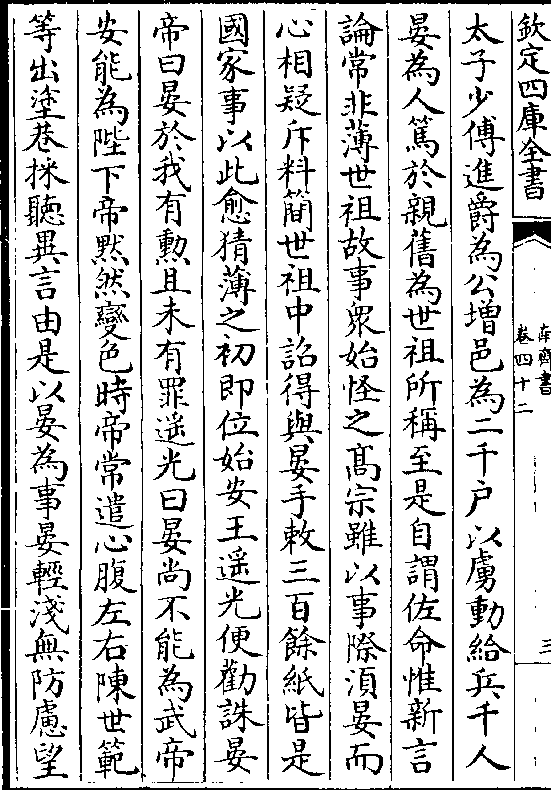 欽定四庫全書
南齊書
卷四十二
三
太子少傅進爵為公增邑為二千户以虜動給兵千人
晏為人篤於親舊為世祖所稱至是自謂佐命惟新言
論常非薄世祖故事衆始怪之髙宗雖以事際湏晏而
心相疑斥料簡世祖中詔得與晏手敕三百餘紙皆是
國家事以此愈猜薄之初即位始安王遥光便勸誅晏
帝曰晏於我有勲且未有罪遥光曰晏尚不能為武帝
安能為陛下帝黙然變色時帝常遣心腹左右陳世範
等出塗巷採聽異言由是以晏為事晏輕淺無防慮望